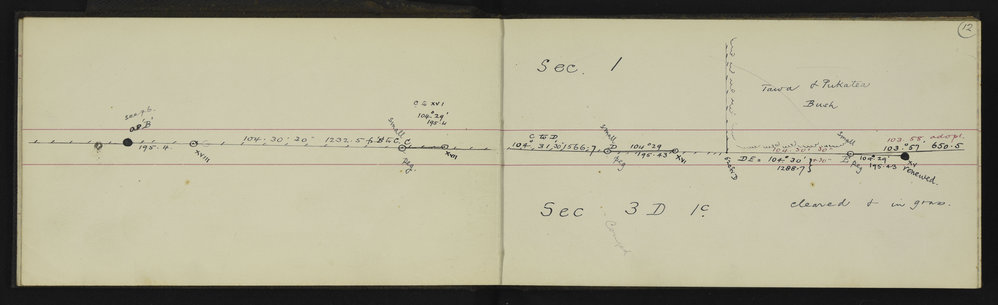 12
C to XVI
104° 29'
195.4
see p.6.
old 'B'
Small
104. 30' 20" 1232.5 fr B to C. C
195.4.
XVIII
peg
XVI
Sec. 1
Tawa & Pukatea
Bush
C to D
104. 31, 30, 1566.7
Small
D
peg
104° 29
195.43
XVI
104° 30'
DE = 104° 30' 20"
1288.7
Small
E peg
103.55, adopt.
103.° 57' 650.5
104° 29'
195.43
XV renewed.
Sec 3 D 1c
cleared & in grass.